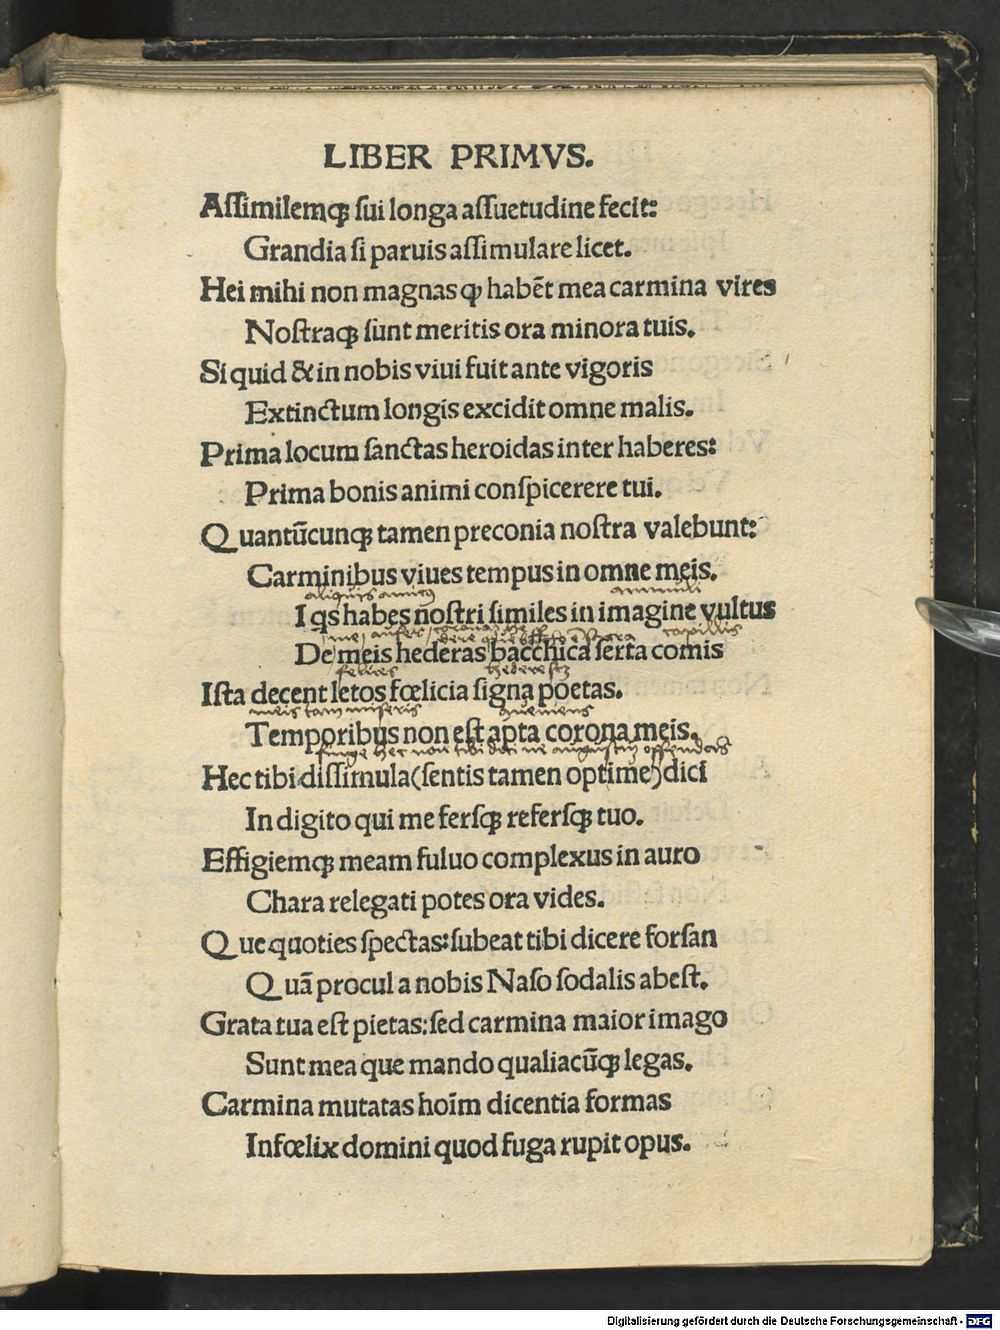 LIBER PRIMVS.
Aſſimilemqꝫ ſui longa aſſuetudine fecit:
Grandia ſi paruis aſſimulare licet.
Hei mihi non magnas ꝙ habēt mea carmina vires
Noſtraqꝫ ſunt meritis ora minora tuis.
Si quid & in nobis viui fuit ante vigoris
Extinctum longis excidit omne malis.
Prima locum ſanctas heroidas inter haberes:
Prima bonis animi conſpicerere tui.
Quantūcunqꝫ tamen preconia noſtra valebunt:
Carminibus viues tempus in omne meis.
aliquis amicus annuli
I qs habes noſtri ſimiles in imagine vultus
me aufer capillis
De meis hederas bacchica ſerta comis
felices hedere
Iſta decent letos fœlicia ſigna poetas.
meis tam miseris
Temporibus non eſt apta corona meis.
finge hec non tibi dici ne augustum offendas
Hec tibi diſſimula (ſentis tamen optime) dici
In digito qui me ferſqꝫ referſqꝫ tuo.
Effigiemqꝫ meam fuluo complexus in auro
Chara relegati potes ora vides.
Que quoties ſpectas: ſubeat tibi dicere forſan
Quā procul a nobis Naſo ſodalis abeſt.
Grata tua eſt pietas: ſed carmina maior imago
Sunt mea que mando qualiacūqꝫ legas.
Carmina mutatas hoīm dicentia formas
Infœlix domini quod fuga rupit opus.
Digitalisierung gefördert durch die Deutsche Forschungsgemeinschaft - DFG